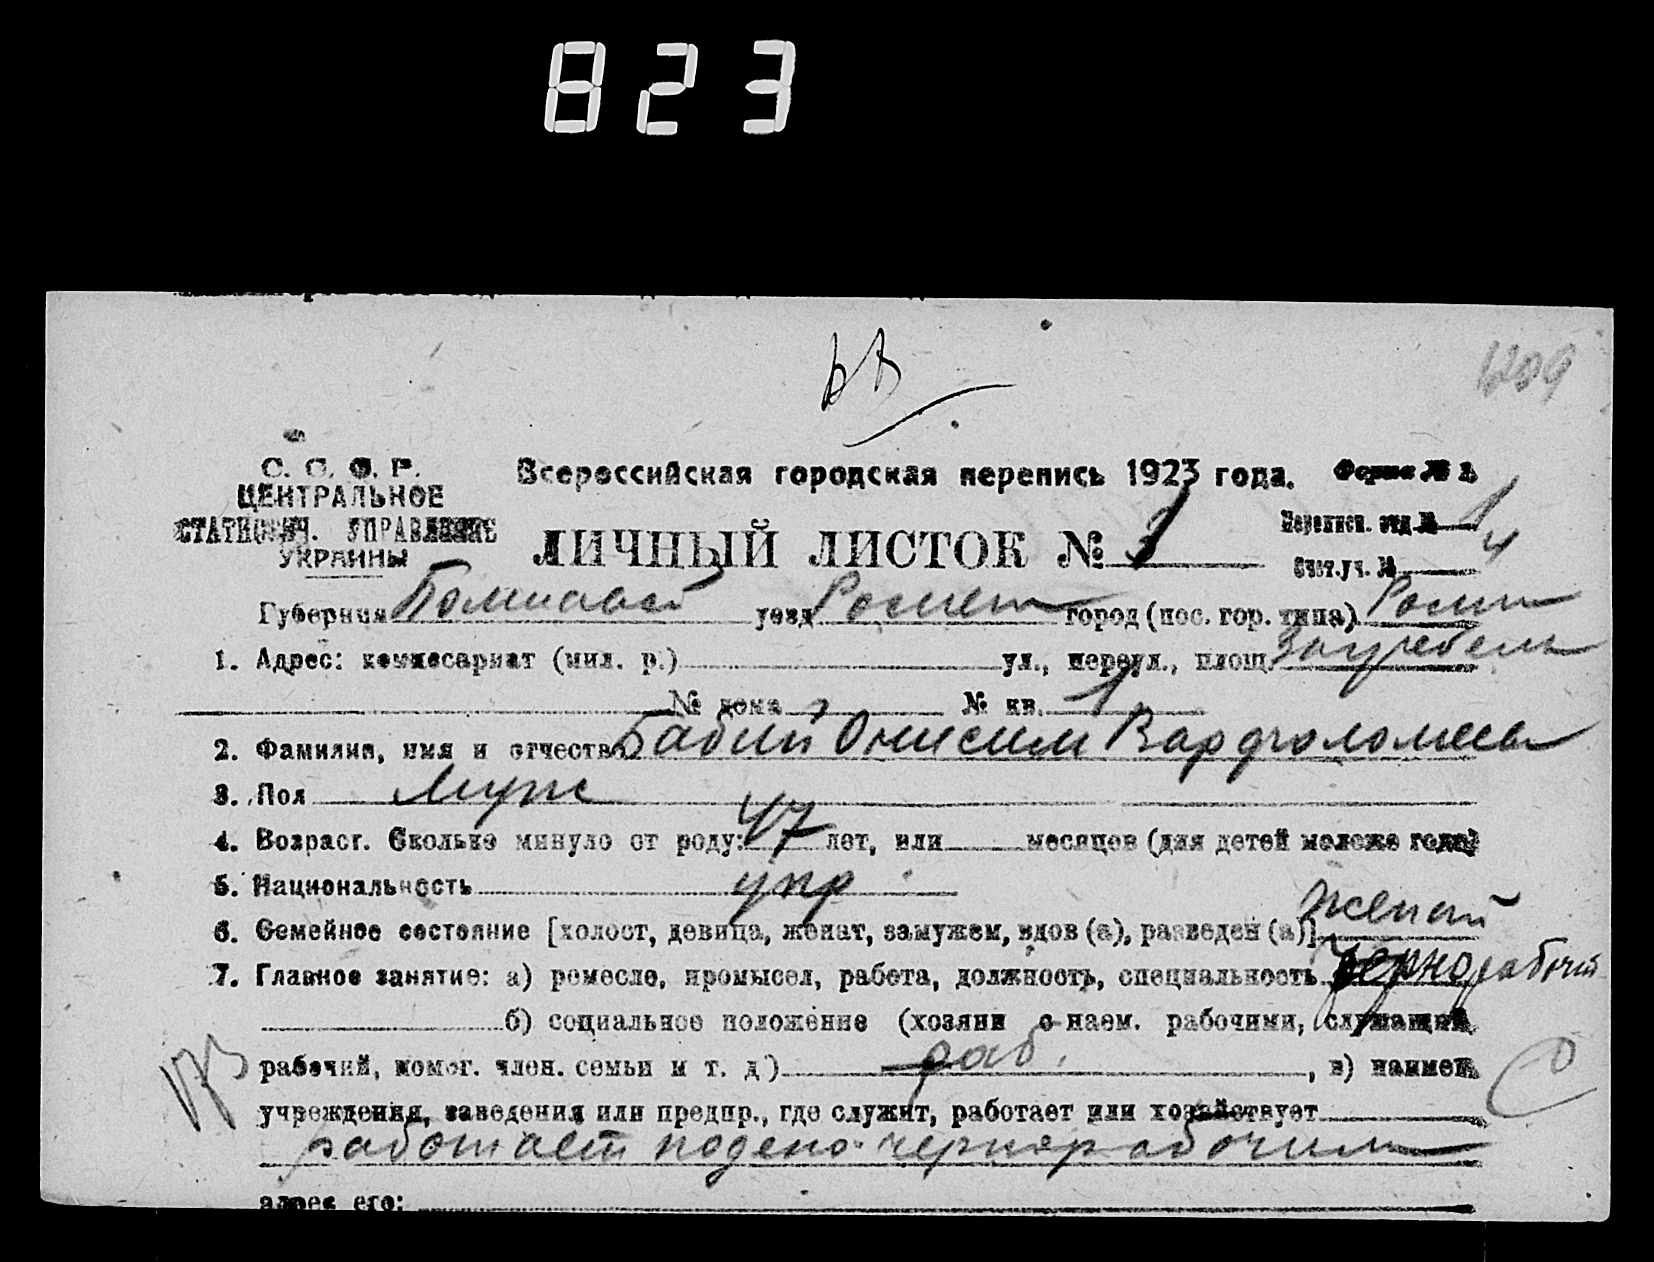 823
1209
С. С. Ф. Р.
ЦЕНТРАЛЬНОЕ
СТАТИСТИЧ. УПРАВЛЕНИЕ
УКРАИНЫ
Всероссийская городская перепись 1923 года. Форма № 2.
ЛИЧНЫЙ ЛИСТОК № 3
Переписн. отд. № 1
Счет. уч. № 4
Губерния уезд Ромен город (пос. гор. типа) Ромн
1. Адрес: комиссариат (мил. р.) ул., переул., площ. Загребель
№ дома № кв. 1
2. Фамилия, имя и отчество Бабий Онисим Варфоломеев
3. Пол Муж
4. Возраст. Сколько минуло от роду: 47 лет, или месяцев (для детей моложе года)
5. Национальность укр
6. Семейное состояние [холост, девица, женат, замужем, вдов (а), разведен (а)] женат
7. Главное занятие: а) ремесло, промысел, работа, должность, специальность Чернорабочий
б) социальное положение (хозяин с наем. рабочими, служащий,
рабочий, помог. член. семьи и т. д.) раб. , в) наимен.
учреждения, заведения или предпр., где служит, работает или хозяйствует
работает поденно чернорабочим
адрес его: